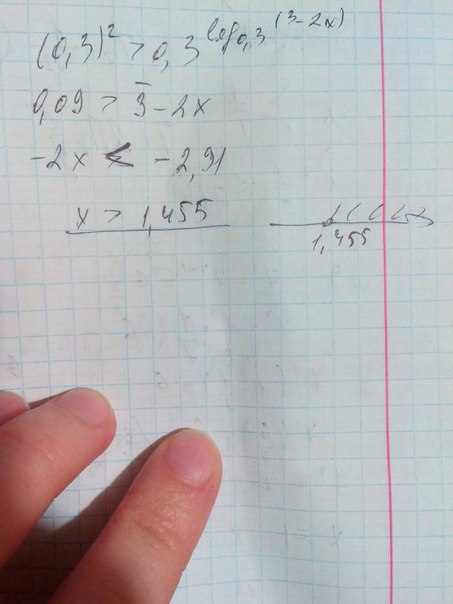 (0,3)² > 0,3^log₀,₃(3-2x)
0,09 > 3-2x
-2x < -2,91
x > 1,455
1,455